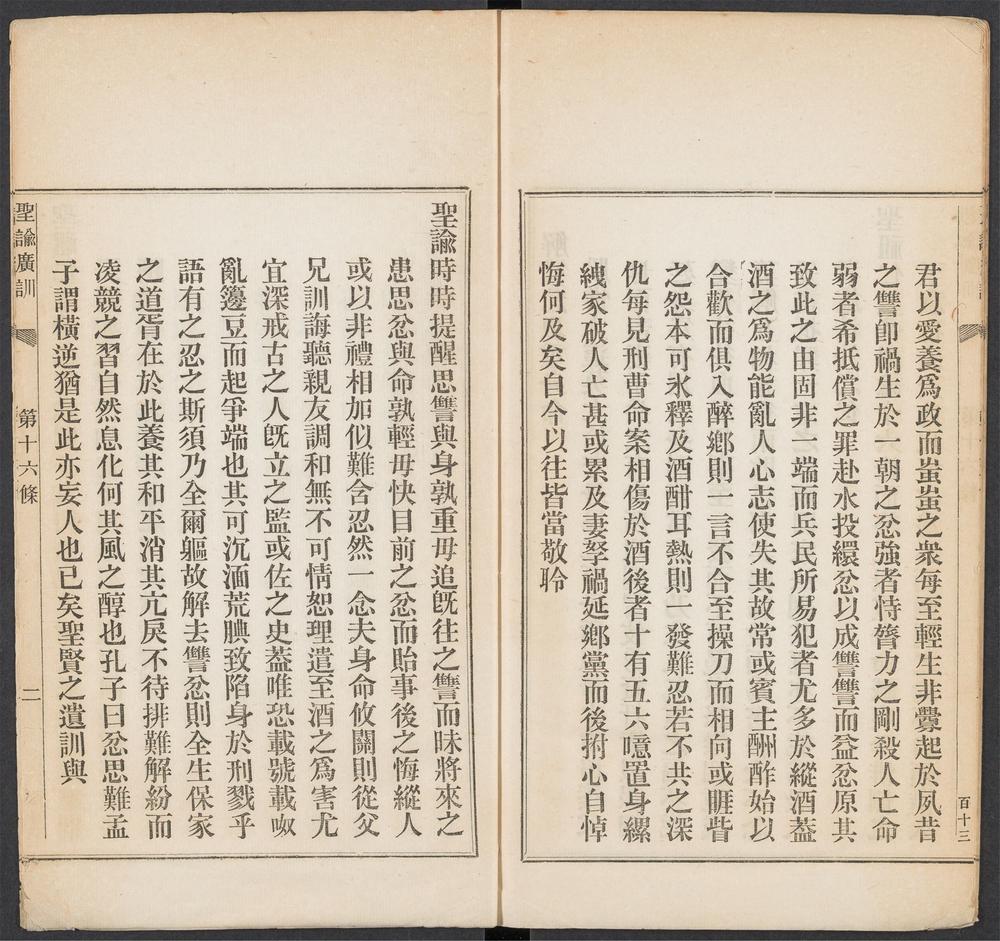 君以愛養爲政而蚩蚩之衆每至輕生非釁起於夙昔
之讐卽禍生於一朝之忿強者恃膂力之剛殺人亡命
弱者希抵償之罪赴水投繯忿以成讐讐而益忿原其
致此之由固非一端而兵民所易犯者尤多於縱酒蓋
酒之爲物能亂人心志使失其故常或賓主酬酢始以
合歡而俱入醉鄉則一言不合至操刀而相向或睚眥
之怨本可氷釋及酒酣耳熱則一發難忍若不共之深
仇每見刑曹命案相傷於酒後者十有五六噫置身縲
絏家破人亡甚或累及妻孥禍延鄉黨而後拊心自悼
悔何及矣自今以往皆當敬聆
百十三
聖諭時時提醒思讐與身孰重毋追旣往之讐而昧將來之
患思忿與命孰輕毋快目前之忿而貽事後之悔縱人
或以非禮相加似難含忍然一念夫身命攸關則從父
兄訓誨聽親友調和無不可情恕理遣至酒之爲害尤
宜深戒古之人旣立之監或佐之史蓋唯恐載號載呶
亂籩豆而起爭端也其可沉湎荒腆致陷身於刑戮乎
語有之忍之斯須乃全爾軀故解去讐忿則全生保家
之道胥在於此養其和平消其亢戾不待排難解紛而
凌競之習自然息化何其風之醇也孔子曰忿思難孟
子謂橫逆猶是此亦妄人也已矣聖賢之遺訓與
聖諭廣訓 第十六條 二